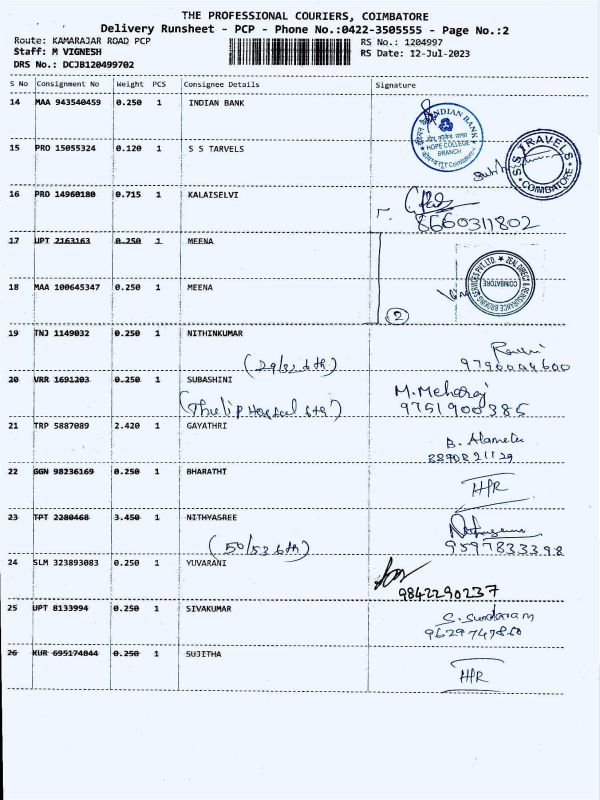 THE PROFESSIONAL COURIERS, COIMBATORE
Delivery Runsheet - PCP - Phone No.:0422-3505555 - Page No.:2
Route: KAMARAJAR ROAD PCP
RS No.: 1204997
Staff: M VIGNESH
RS Date: 12-Jul-2023
DRS No.: DCJB120499702
S No Consignment No Weight PCS Consignee Details Signature
14 MAA 943540459 0.250 1 INDIAN BANK
INDIAN BANK
HOPE COLLEGE
BRANCH
Coimbatore
15 PRO 15055324 0.120 1 S S TARVELS
S.S. TRAVELS
COIMBATORE
16 PRO 14960180 0.715 1 KALAISELVI
8660311802
17 UPT 2163163 0.250 1 MEENA
ZEAL DIRECT & REINSURANCE BROKING SERVICES PVT. LTD.
COIMBATORE
18 MAA 100645347 0.250 1 MEENA
2
19 TNJ 1149032 0.250 1 NITHINKUMAR
(29/32 6th)
20 VRR 1691203 0.250 1 SUBASHINI
M. Meharaj
9751900385
21 TRP 5887089 2.420 1 GAYATHRI
8890821129
22 GGN 98236169 0.250 1 BHARATHI
23 TPT 2280468 3.450 1 NITHYASREE
(50/53 6th)
9597833398
24 SLM 323893083 0.250 1 YUVARANI
9842290237
25 UPT 8133994 0.250 1 SIVAKUMAR
S. Sundaram
26 KUR 695174844 0.250 1 SUJITHA